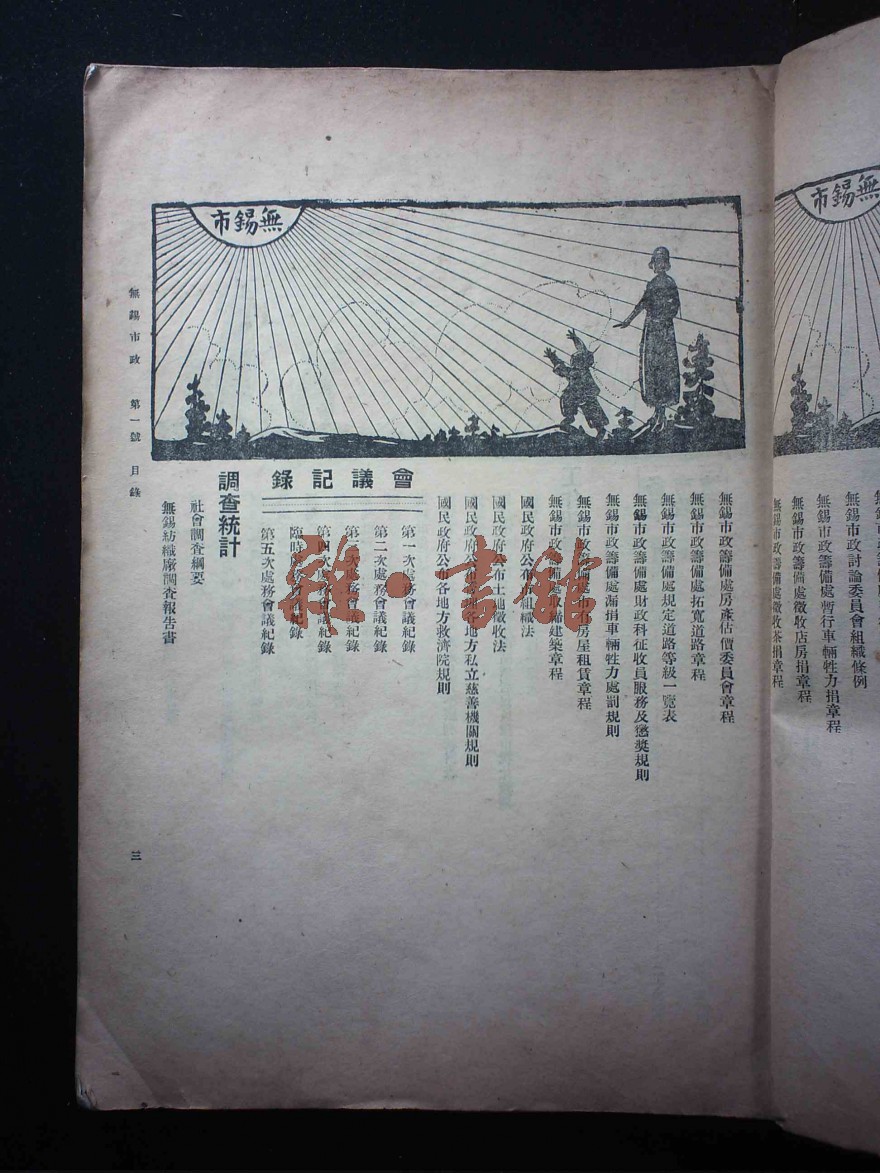 市錫無
無錫市政籌備處房產估價委員會章程
無錫市政籌備處拓寬道路章程
無錫市政籌備處規定道路等級一覽表
無錫市政籌備處財政科征收員服務及懲獎規則
無錫市政籌備處漏捐車輛牲力處罰規則
無錫市政籌備處市有房屋租賃章程
無錫市政籌備處取締建築章程
國民政府公布市組織法
國民政府公布土地徵收法
國民政府公布 各地方私立慈善機關規則
國民政府公布各地方救濟院規則
錄記議會
第一次處務會議紀錄
第二次處務會議紀錄
第三次處務會議紀錄
第四次處務會議紀錄
臨時處務會議紀錄
第五次處務會議紀錄
調查統計
社會調查綱要
無錫紡織廠調查報告書
無錫市政 第一號 目錄
三
無錫市
無錫市政討論委員會組織條例
無錫市政籌備處暫行車輛牲力捐章程
無錫市政籌備處徵收店房捐章程
無錫市政籌備處徵收茶捐章程
雜·書館